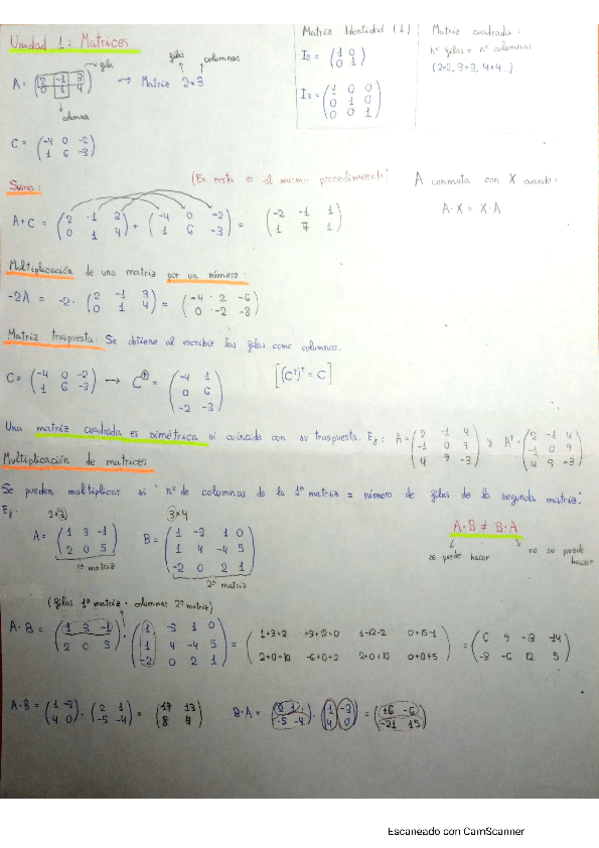 Unidad 1: Matrices
fila
filas columnas
A = (2 -1 3 / 0 1 4) → Matriz 2×3
columna
C = (-4 0 -2 / 1 6 -3)
Matriz Identidad (I)
I2 = (1 0 / 0 1)
I3 = (1 0 0 / 0 1 0 / 0 0 1)
Matriz cuadrada:
nº filas = nº columnas
(2×2, 3×3, 4×4...)
Suma: (En resta es el mismo procedimiento)
A+C = (2 -1 3 / 0 1 4) + (-4 0 -2 / 1 6 -3) = (-2 -1 1 / 1 7 1)
A conmuta con X cuando:
A·X = X·A
Multiplicación de una matriz por un número:
-2A = -2· (2 -1 3 / 0 1 4) = (-4 2 -6 / 0 -2 -8)
Matriz traspuesta: Se obtiene al escribir las filas como columnas.
C = (-4 0 -2 / 1 6 -3) → Cᵗ = (-4 1 / 0 6 / -2 -3) [(Cᵗ)ᵗ = C]
Una matriz cuadrada es simétrica si coincide con su traspuesta. Ej: A = (2 -1 4 / -1 0 9 / 4 9 -3) y Aᵗ = (2 -1 4 / -1 0 9 / 4 9 -3)
Multiplicación de matrices
Se pueden multiplicar si "nº de columnas de la 1ª matriz = número de filas de la segunda matriz".
Ej: 2×3 3×4
A = (1 3 -1 / 2 0 5) B = (1 -3 1 0 / 1 4 -4 5 / -2 0 2 1)
1ª matriz
2ª matriz
A·B ≠ B·A
se puede hacer
no se puede hacer
(filas 1ª matriz · columnas 2ª matriz)
A·B = (1 3 -1 / 2 0 5) · (1 -3 1 0 / 1 4 -4 5 / -2 0 2 1) = (1+3+2 -3+12+0 1-12-2 0+15-1 / 2+0-10 -6+0+0 2+0+10 0+0+5) = (6 9 -13 14 / -8 -6 12 5)
A·B = (1 -3 / 4 0) · (2 1 / -5 -4) = (17 13 / 8 4)